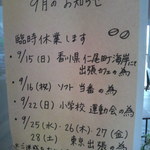 9月の お知らせ
臨時休業します
・9/15(日) 香川県 仁尾町 海岸に
出張カフェの為
・9/16(祝) ソフト 当番の為
・9/22(日) 小学校 運動会の為
・9/25(水)・26(木)・27(金)
28(土) 東京出張の為